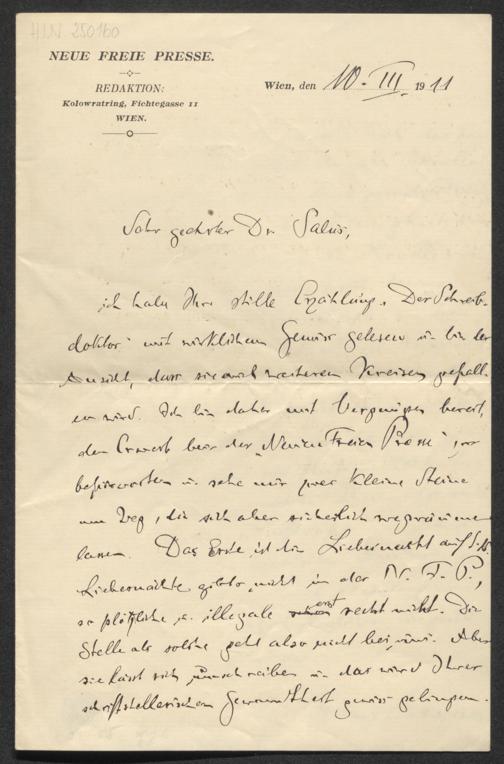 HIN 250160
NEUE FREIE PRESSE.
REDAKTION:
Kolowratring, Fichtegasse 11
WIEN.
Wien, den 10. III. 1911
Sehr geehrter Dr. Salus,
ich habe Ihre stille Erzählung „Der Schreib-
doktor" mit wirklichem Genuss gelesen u. bin der
Ansicht, dass sie auch weiteren Kreisen gefall-
en wird. Ich bin daher mit Vergnügen bereit,
den Erwerb bei der „Neuen Freien Presse" zu
befürworten u. sehe nur zwei kleine Steine
am Weg, die sich aber sicherlich wegräumen
lassen. Das Erste ist die Liebesnacht auf S.
Liebesnächte gibt's nicht in der N. F. P.,
so plötzliche u. illegale erst recht nicht. Die
Stelle als solche geht also nicht bei uns. Aber
sie lässt sich umschreiben u. das wird Ihrer
schriftstellerischen Gewandtheit gewiss gelingen.